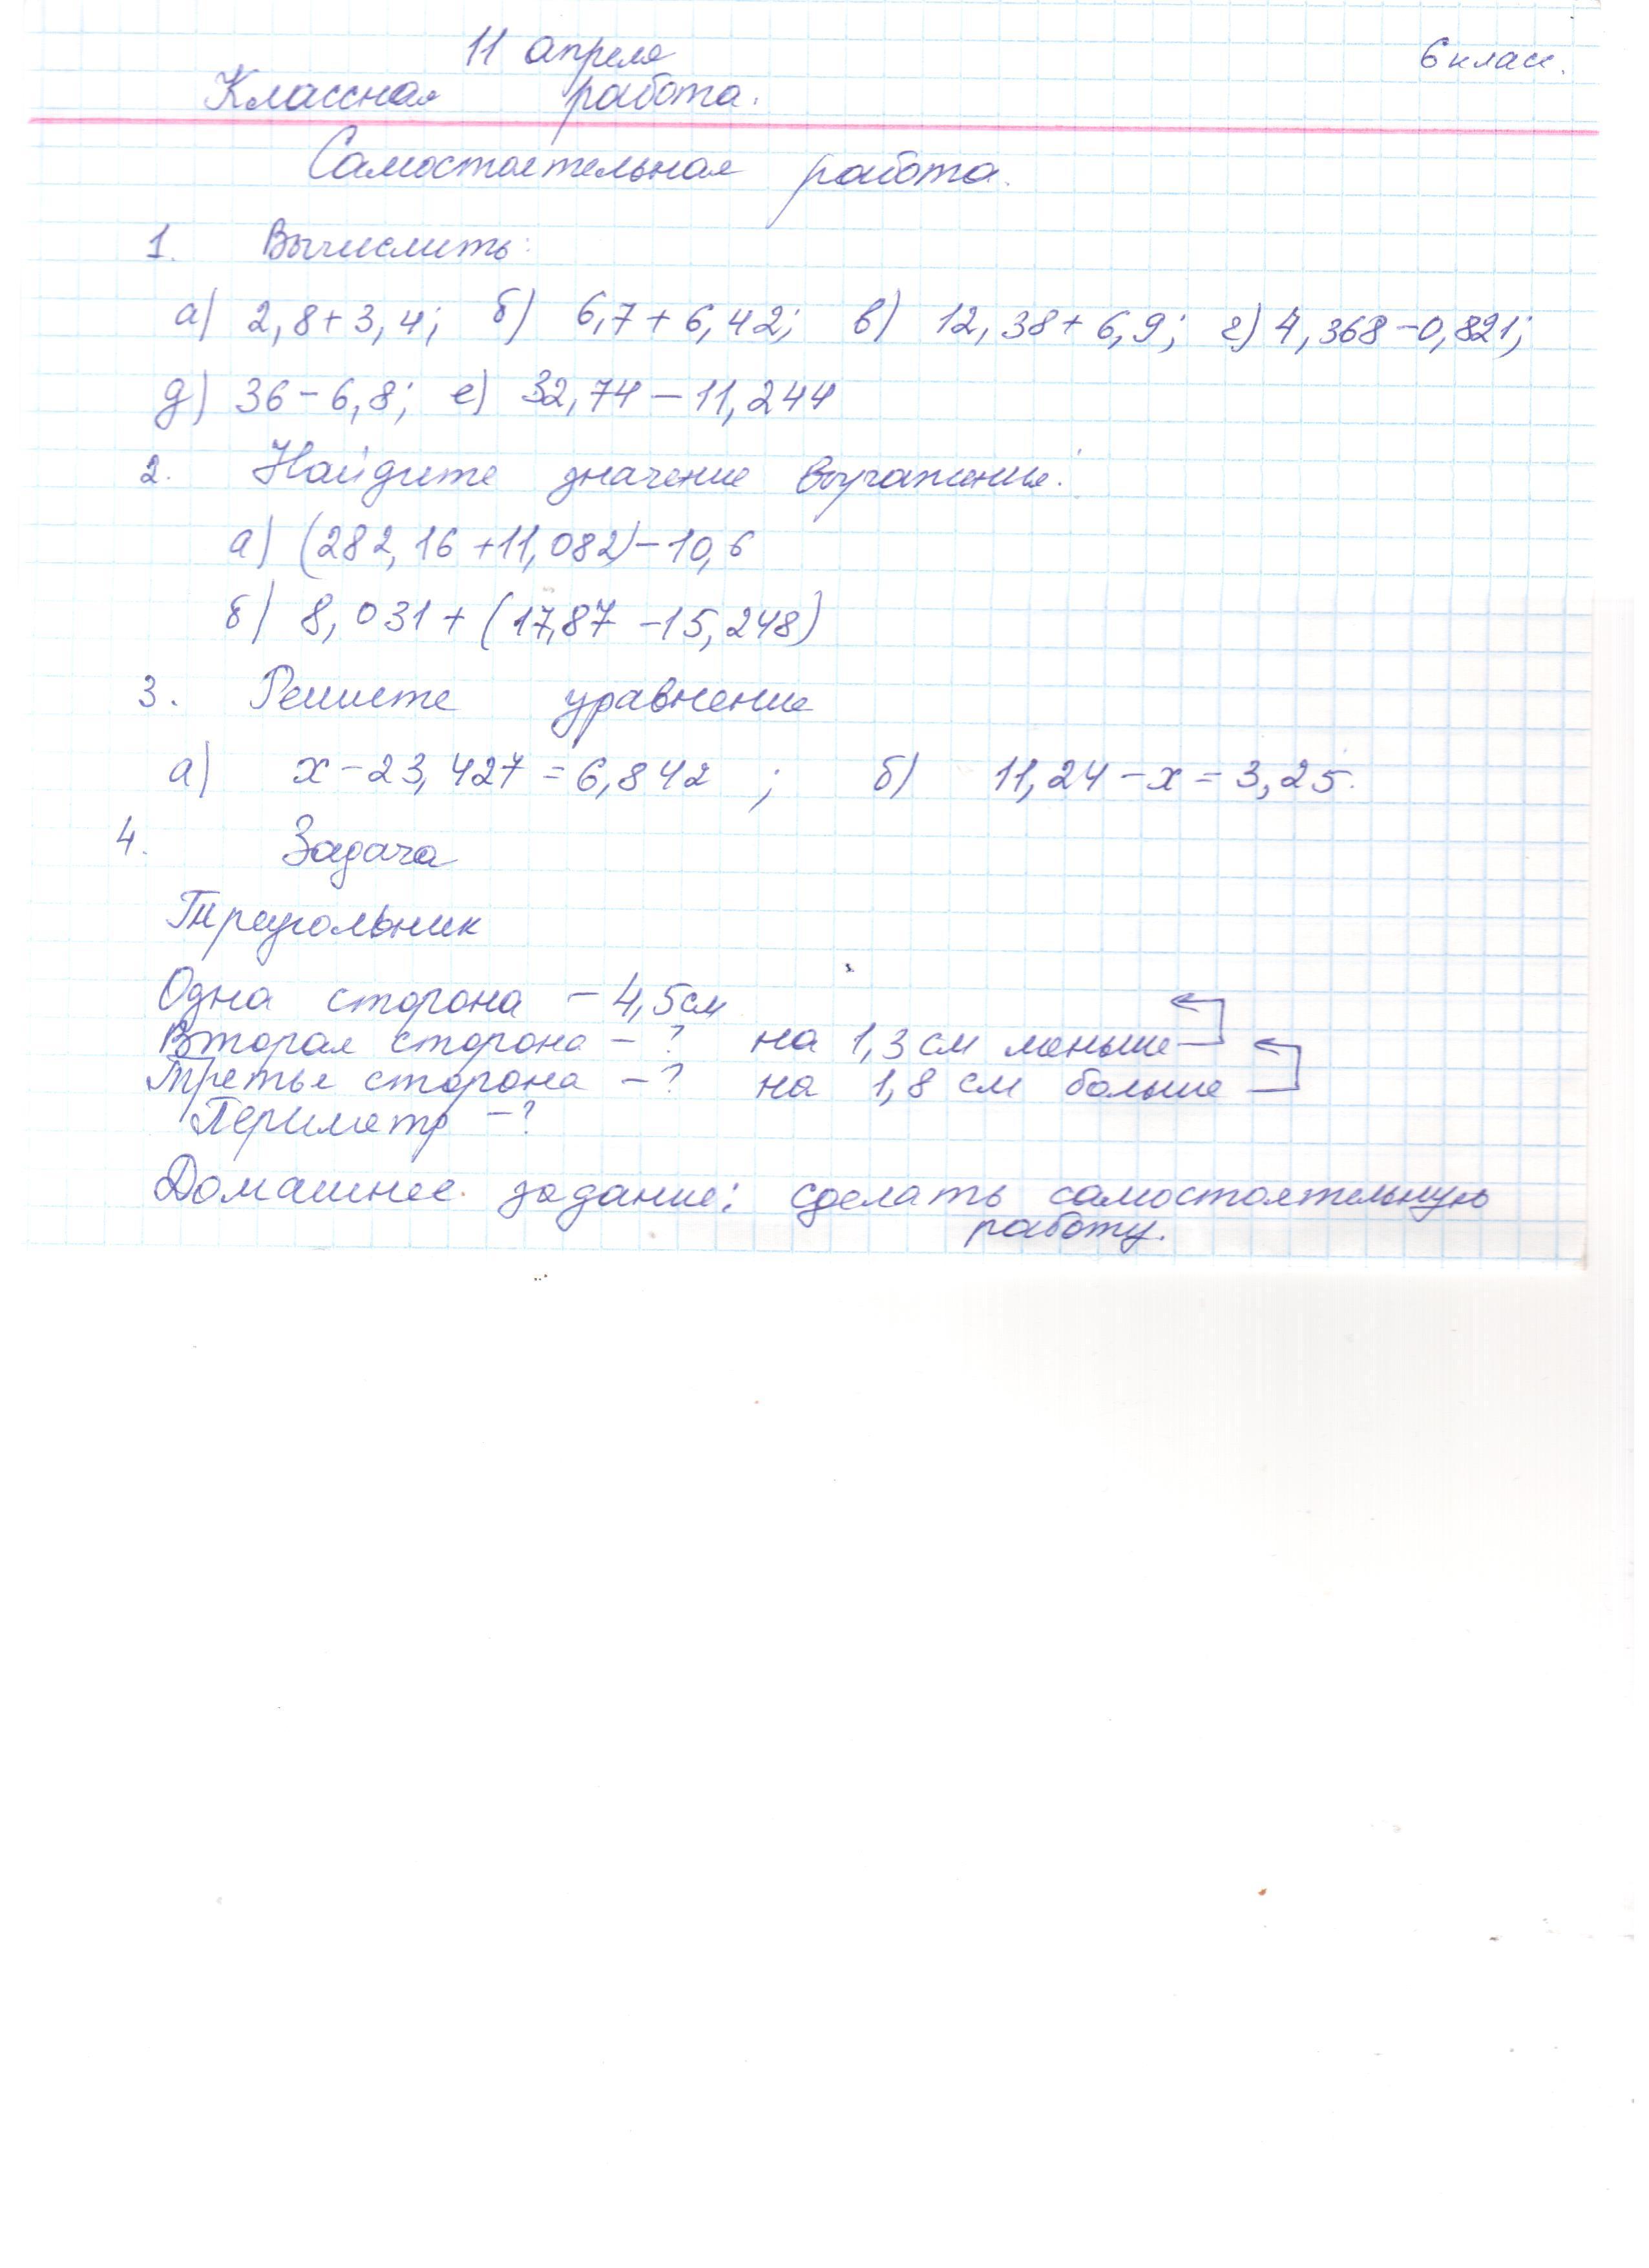 11 апреля
6 класс.
Классная работа.
Самостоятельная работа.
1. Вычислить:
а) 2,8+3,4; б) 6,7+6,42; в) 12,38+6,9; г) 4,368-0,821;
д) 36-6,8; е) 32,74-11,244
2. Найдите значение выражения:
а) (282,16+11,082)-10,6
б) 8,031+(17,87-15,248)
3. Решите уравнение
а) x-23,427=6,842 ; б) 11,24-x=3,25.
4. Задача
Треугольник
Одна сторона - 4,5см
Вторая сторона - ? на 1,3 см меньше
Третья сторона - ? на 1,8 см больше
Периметр - ?
Домашнее задание: сделать самостоятельную
работу.